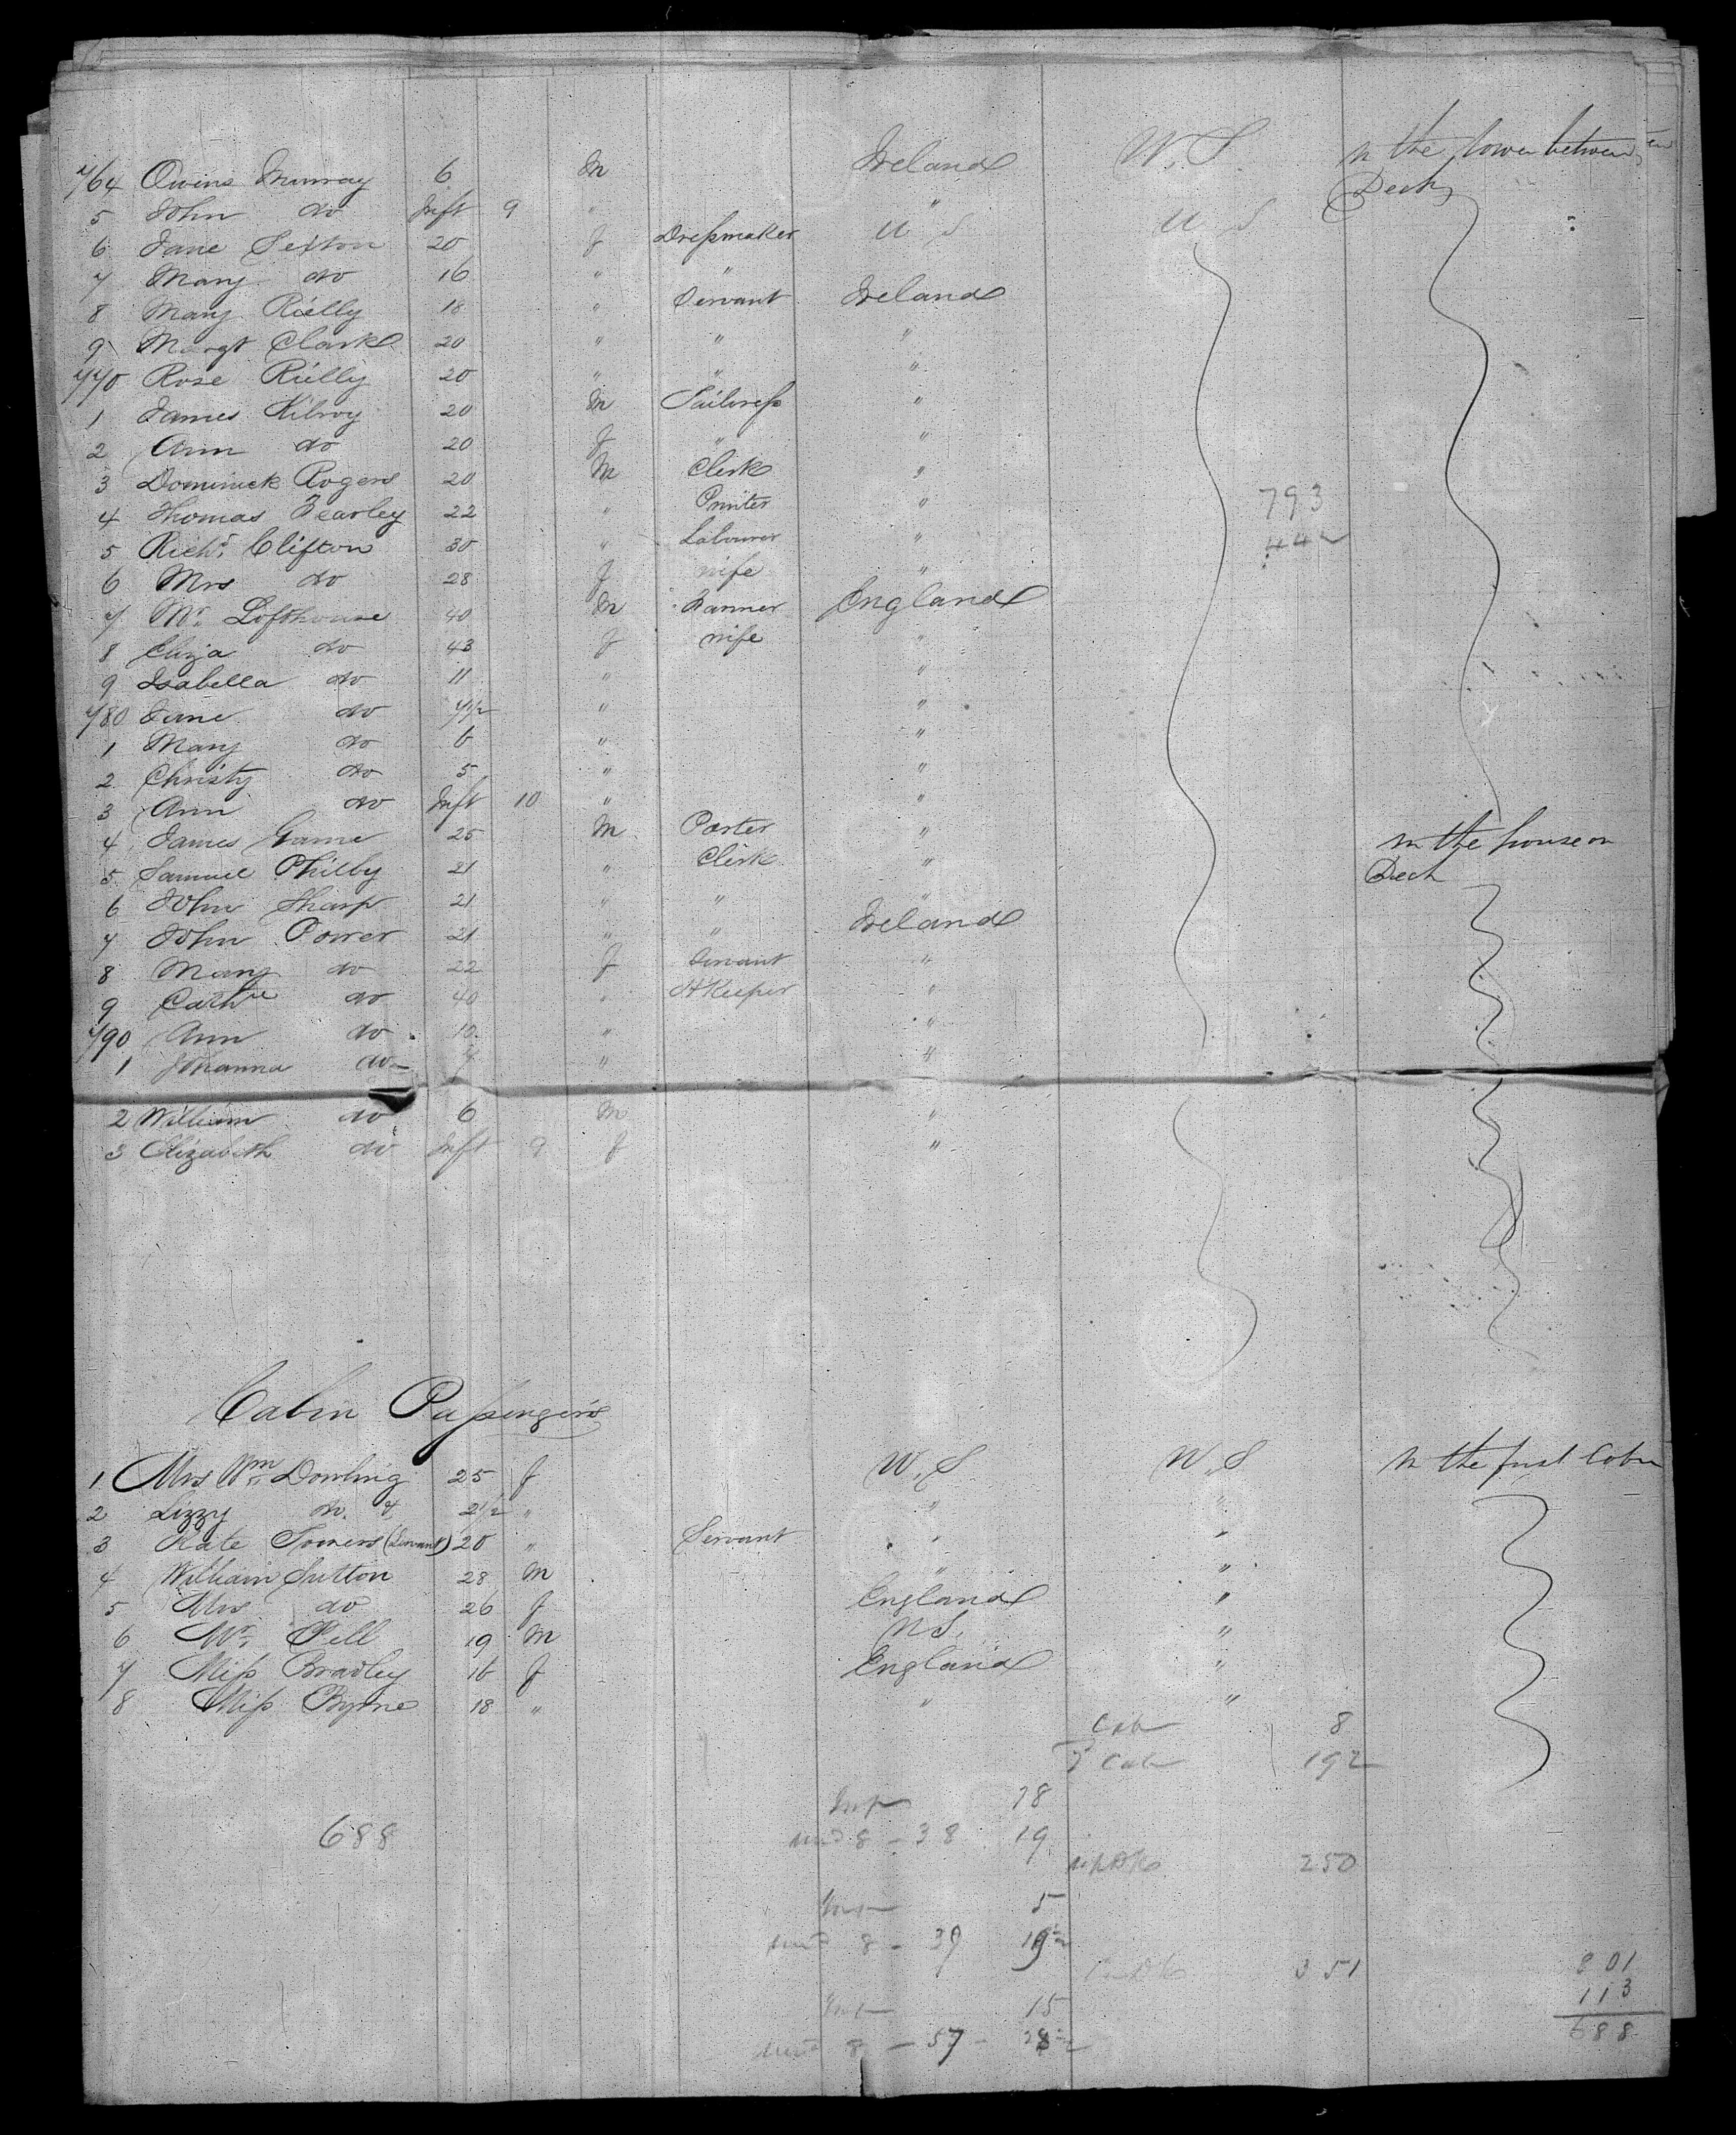 764 Owens Murray 6 M Ireland U.S. In the lower between
Decks
5 John do Inft 9 " "
6 Jane Sexton 20 f Dressmaker U S U S
7 Mary do 16 " "
8 Mary Rielly 18 " Servant Ireland
9 Margt Clark 20 " " "
770 Rose Rielly 20 " " "
1 James Kilroy 20 M Tailoress "
2 Ann do 20 f " "
3 Dominick Rogers 20 M Clerk "
4 Thomas Fearley 22 " Printer "
793
5 Richd Clifton 30 " Labourer "
442
6 Mrs do 28 f wife "
7 Mr. Lofthouse 40 M Farmer England
8 Eliza do 43 f wife "
9 Isabella do 11 " "
780 Jane do 7 1/2 " "
1 Mary do 6 " "
2 Christy do 5 " "
3 Ann do Inft 10 " "
4 James Game 25 M Porter " In the house on
Deck
5 Samuel Philby 21 " Clerk "
6 John Sharp 21 " " "
7 John Power 21 " " Ireland
8 Mary do 22 f Servant "
9 Cathne do 40 " H Keeper "
790 Ann do 10 " "
1 Johanna do 7 " "
2 William do 6 M "
3 Elizabeth do Inft 9 f "
Cabin Passengers
1 Mrs Wm Dowling 25 f U.S. U.S In the first Cabin
2 Lizzy do 2 1/2 " " "
3 Kate Somers (Servant) 20 " Servant " "
4 William Sutton 28 M " "
5 Mrs do 26 f England "
6 Mr. Pell 19 M U S. "
7 Miss Bradley 16 f England "
8 Miss Byrne 18 " " "
Cab 8
2 Cab 192
Inf 18
und 8 - 38 19
688
upDk 250
Inf 5
und 8 - 39 19 1/2
351
801
Inf 15
113
und 8 - 57 - 28 1/2
688